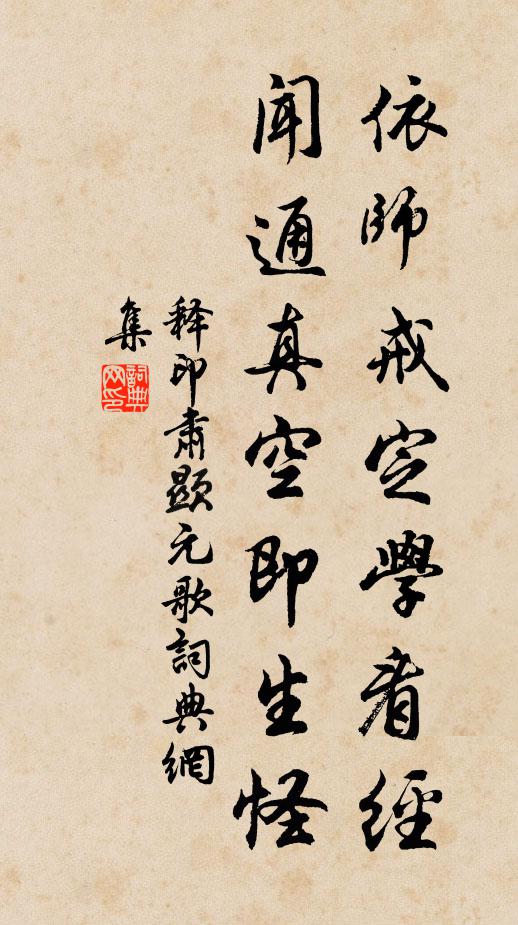 依師戒定學看經
聞通真空即生怪
释印肅顯元歌詞典網
集
詞典網印